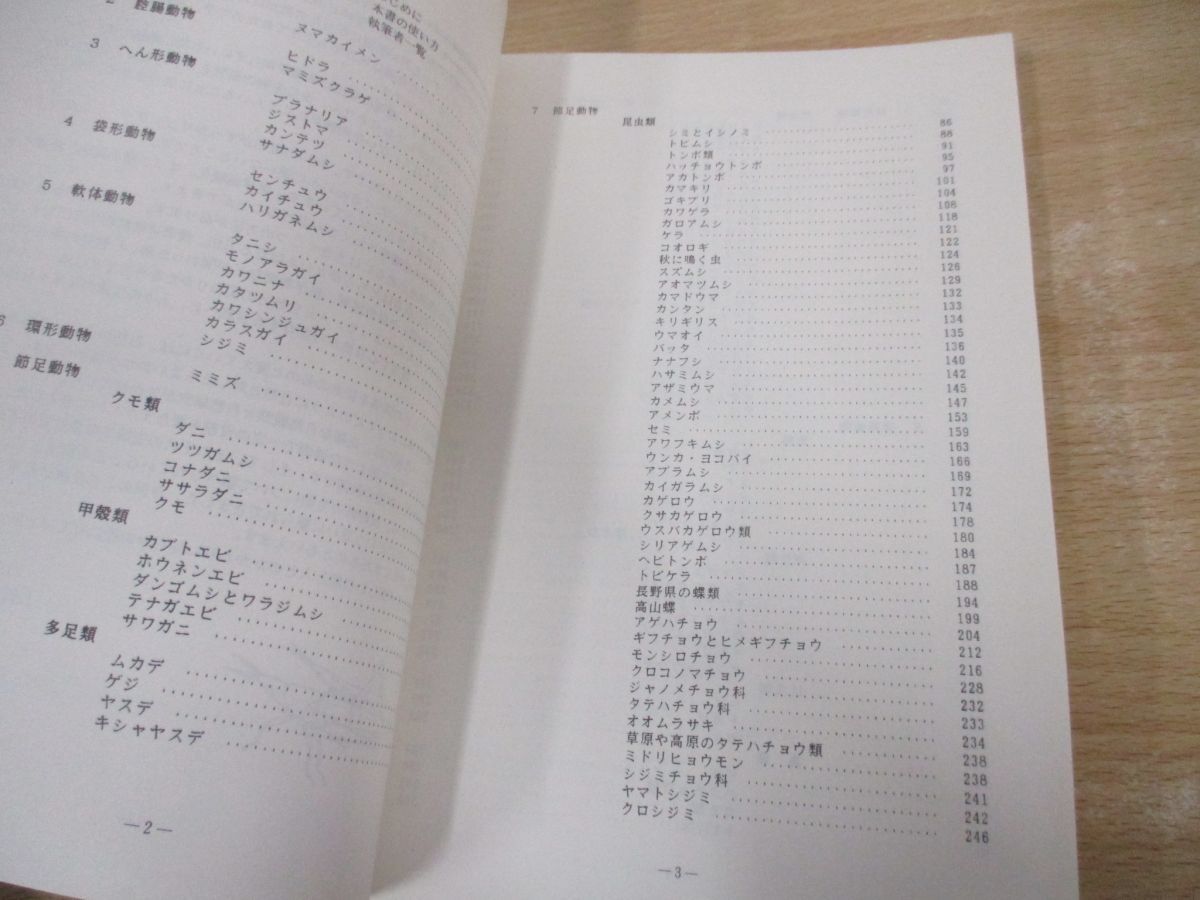 じめに
本書の使い方
執筆者一覧
2 腔腸動物
ヌマカイメン
ヒドラ
マミズクラゲ
3 へん形動物
プラナリア
ジストマ
カンテツ
サナダムシ
4 袋形動物
センチュウ
カイチュウ
ハリガネムシ
5 軟体動物
タニシ
モノアラガイ
カワニナ
カタツムリ
カワシンジュガイ
カラスガイ
シジミ
6 環形動物
ミミズ
節足動物
クモ類
ダニ
ツツガムシ
コナダニ
ササラダニ
クモ
甲殻類
カブトエビ
ホウネンエビ
ダンゴムシとワラジムシ
テナガエビ
サワガニ
多足類
ムカデ
ゲジ
ヤスデ
キシャヤスデ
―2―
7 節足動物
昆虫類
シミとイシノミ 86
トビムシ 88
トンボ類 91
ハッチョウトンボ 95
アカトンボ 97
カマキリ 101
ゴキブリ 104
カワゲラ 108
ガロアムシ 118
ケラ 121
コオロギ 122
秋に鳴く虫 124
スズムシ 126
アオマツムシ 129
カマドウマ 132
カンタン 133
キリギリス 134
ウマオイ 135
バッタ 136
ナナフシ 140
ハサミムシ 142
アザミウマ 145
カメムシ 147
アメンボ 153
セミ 159
アワフキムシ 163
ウンカ・ヨコバイ 166
アブラムシ 169
カイガラムシ 172
カゲロウ 174
クサカゲロウ 178
ウスバカゲロウ類 180
シリアゲムシ 184
ヘビトンボ 187
トビケラ 188
長野県の蝶類 194
高山蝶 199
アゲハチョウ 204
ギフチョウとヒメギフチョウ 212
モンシロチョウ 216
クロコノマチョウ 228
ジャノメチョウ科 232
タテハチョウ科 233
オオムラサキ 234
草原や高原のタテハチョウ類 238
ミドリヒョウモン 238
シジミチョウ科 241
ヤマトシジミ 242
クロシジミ 246
―3―